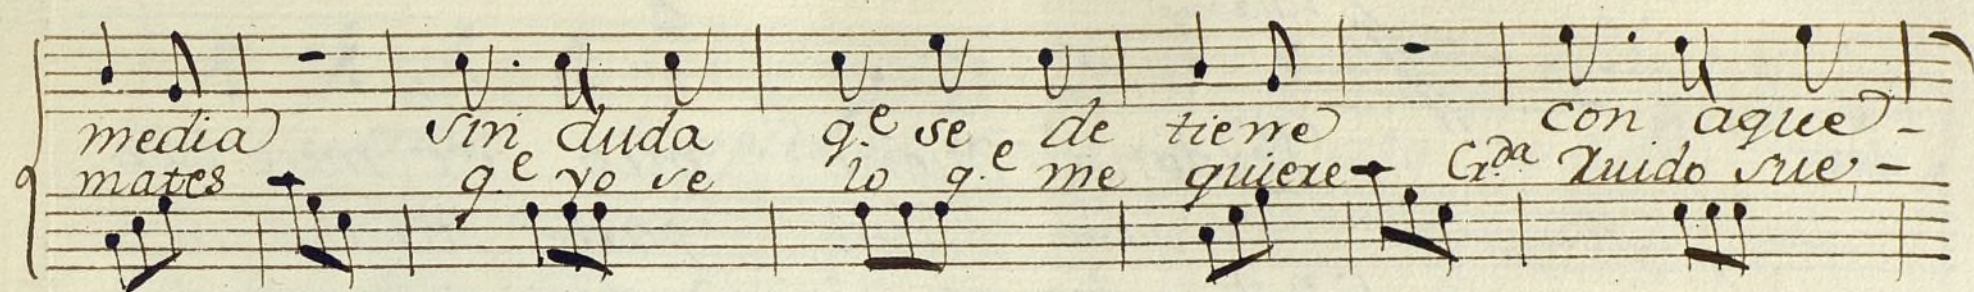 media sin duda q.e se de tiene con aque-
mates q.e yo se lo q.e me quiere Cr.da Ruido sue-